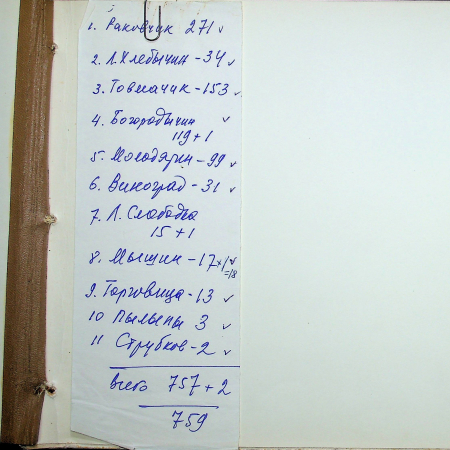 1. Раковчик 271 ✓
2. Л. Хлебычин - 34 ✓
3. Товмачик - 153 ✓
4. Богородычин ✓
119 + 1
5. Молодятин - 99 ✓
6. Виноград - 31 ✓
7. Л. Слободка
15 + 1
8. Мышин - 17 + 1 ✓
= 18
9. Торговица - 13 ✓
10 Пылыпы 3 ✓
11 Струпков - 2 ✓
всего 757 + 2
759